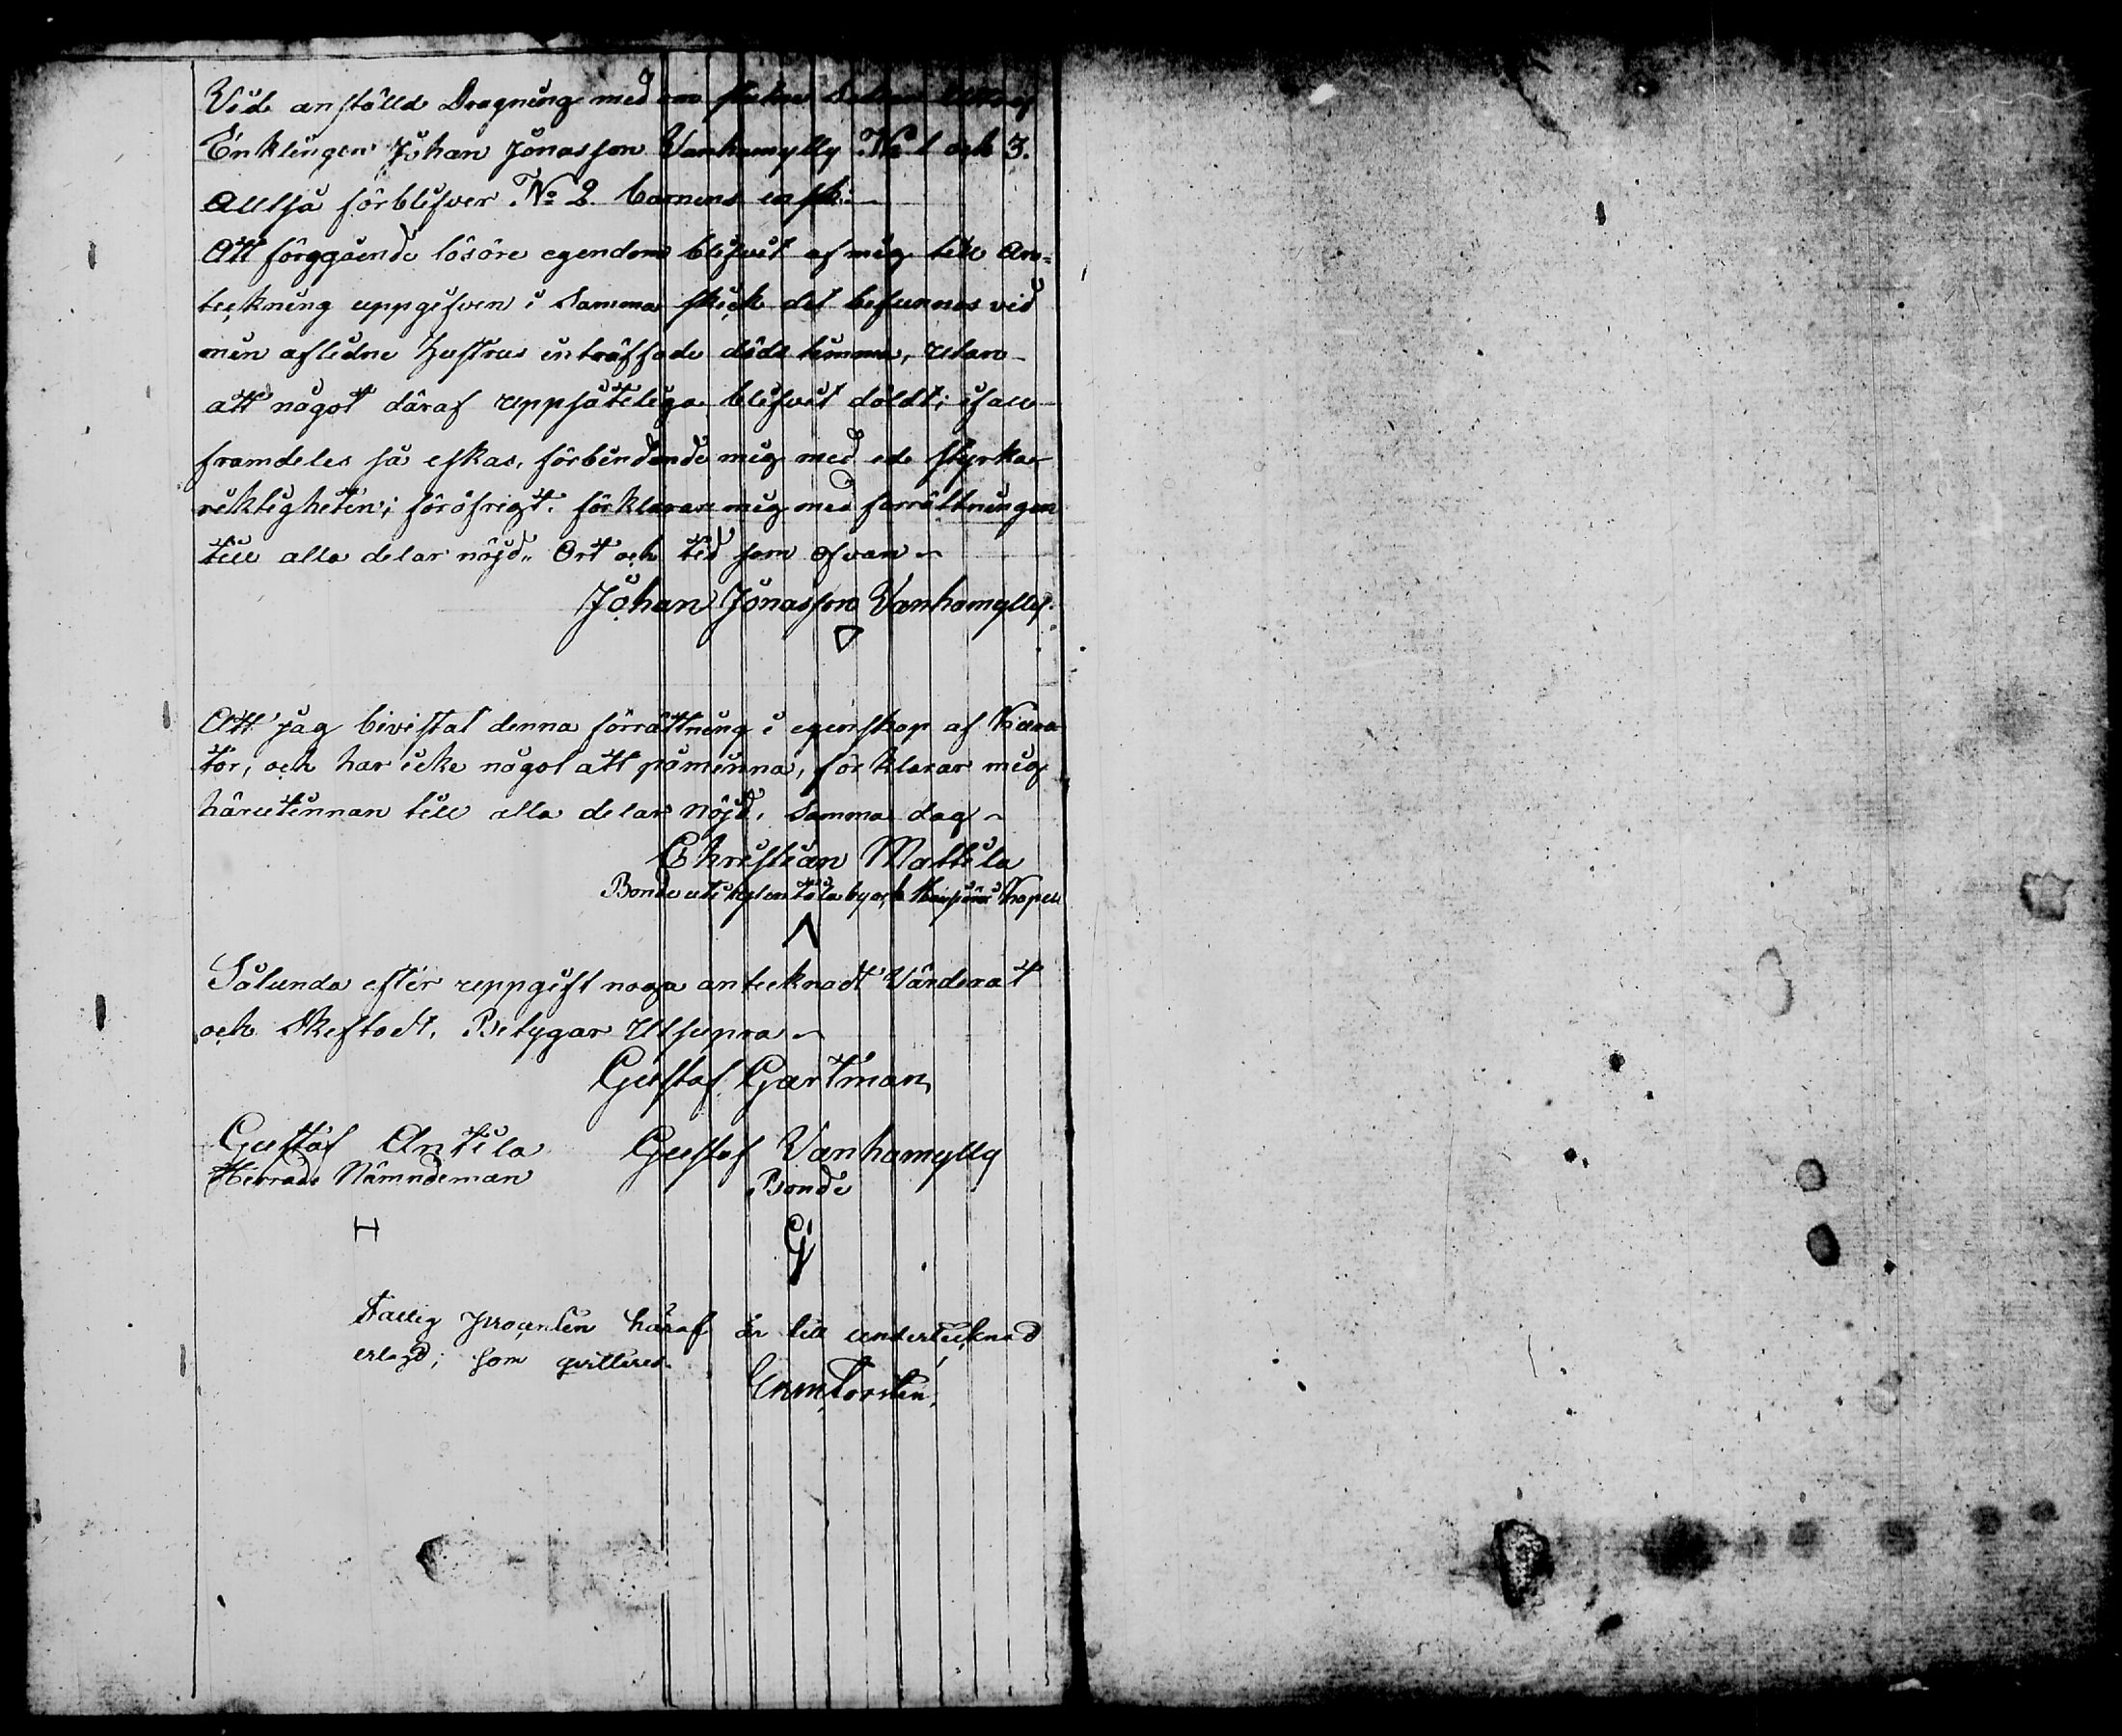 Vid anställd Dragning med
Enklingen Johan Jonasson Vanhamylly No 1 och 3.
Alltså förblifver No 2. barnens
Att förggående lösöre egendom blifvit af mig till An-
teckning uppgifven i samma skick det befunnes vid
min aflidne Hustrus inträffade döds timma, utan
att något däraf uppsåteliga blifvit döldt; ifall
framdeles så eskas, förbindande mig med ed styrka
riktigheten; föröfrigt förklarar mig med förrättningen
till alla delar nöjd. Ort och tid som ofvan
Johan Jonasson Vanhamylly
Att jag bivistat denna förrättning i egenskap af Kura-
tor, och har icke något att påminna, förklarar mig
härutinnan till alla delar nöjd, samma dag
Christian Mattila
Bonde uti by och Kapell
Sålunda efter uppgift noga antecknadt Värderat
och Skeftadt, Betygar Utsupra
Gustaf Gartman
Gustaf Antila Gustaf Vanhamylly
Härads Nämndeman Bonde
H G
Fattig Procenten häraf är till undertecknad
erlagd; som qvitteras.